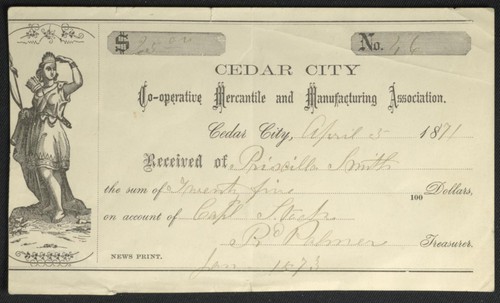 $ 25 00 No. 46
CEDAR CITY
Co-operative Mercantile and Manufacturing Association.
Cedar City, April 5 1871
Received of Priscilla Smith
the sum of Twenty five 100 Dollars,
on account of Capl Stock
Treasurer.
Jan 1873
NEWS PRINT.